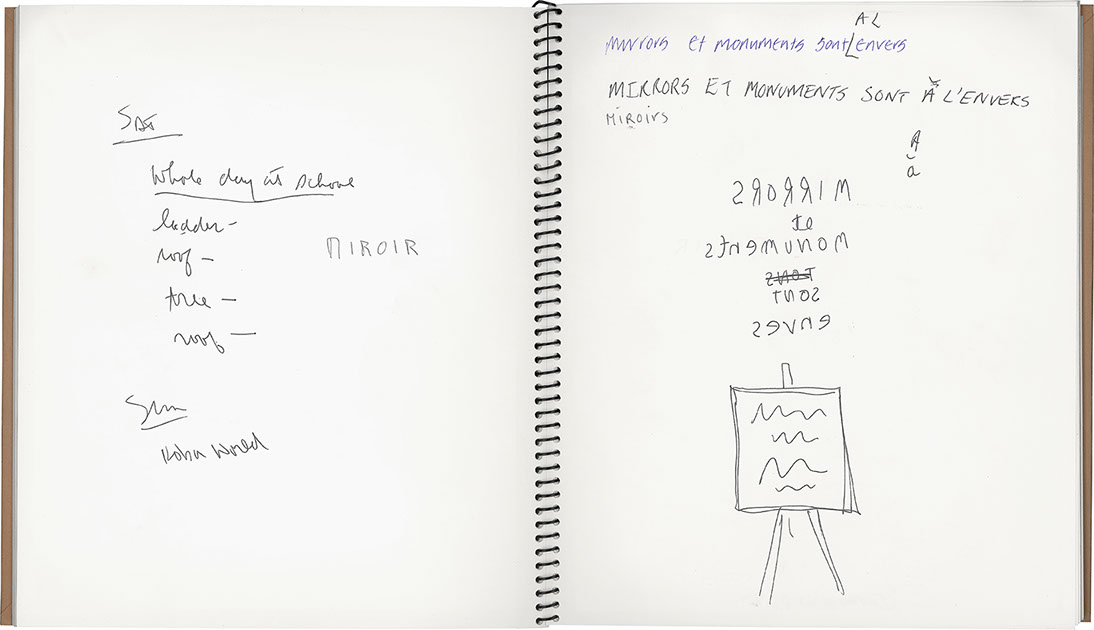 Sat
Whole day at school
ladder -
roof -
MIROIR
tree -
roof -
Sun
World
A L
mirrors et monuments sont envers
MIRRORS ET MONUMENTS SONT Ă L'ENVERS
MIROIRS
A
a
MIRRORS
et
MONUMENTS
SONT
enves